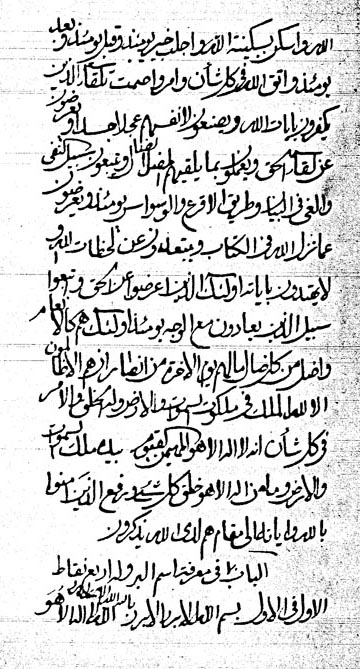 الله واسكن بسكينة الله واجلب خير يومئذ وقبل يومئذ وبعد
يومئذ واتق الله في كل شأن وامر واصمت تلقاء الذين
يكفرون بايات الله ويصنعون لانفسهم عجلا جسدا و يعرضون
عن لقاء الحق ويعملون بما يلقيهم ويتبعون سبيل
والغي في البيان وطريق الاقرع والوسواس يومئذ ويعرضون
عما نزل الله في الكتاب ويبتعدون عن لحظات الله و
لا يهتدون باياته اولئك الذين اعرضوا عن الحق واتبعوا
سبيل الذين يعادون مع الوجه يومئذ اولئك هم كالانعام
واضل من كل ضال مالهم يوم الاخرة من انصار انهم الظالمون
الا لله الملك في ملكوت السموات والارض وله الخلق والامر
في كل شأن انه لا اله الا هو المهيمن القيوم بيده ملك السموات
والارض وما من اله الا هو خلق كل شيء ويرفع الذين امنوا
بالله واياته الى مقام هم لدى الله يذكرون
الباب في معرفة اسم البر وله اربع نقاط
الاول في الاول بسم الله الابر الابر الله لا اله الا هو